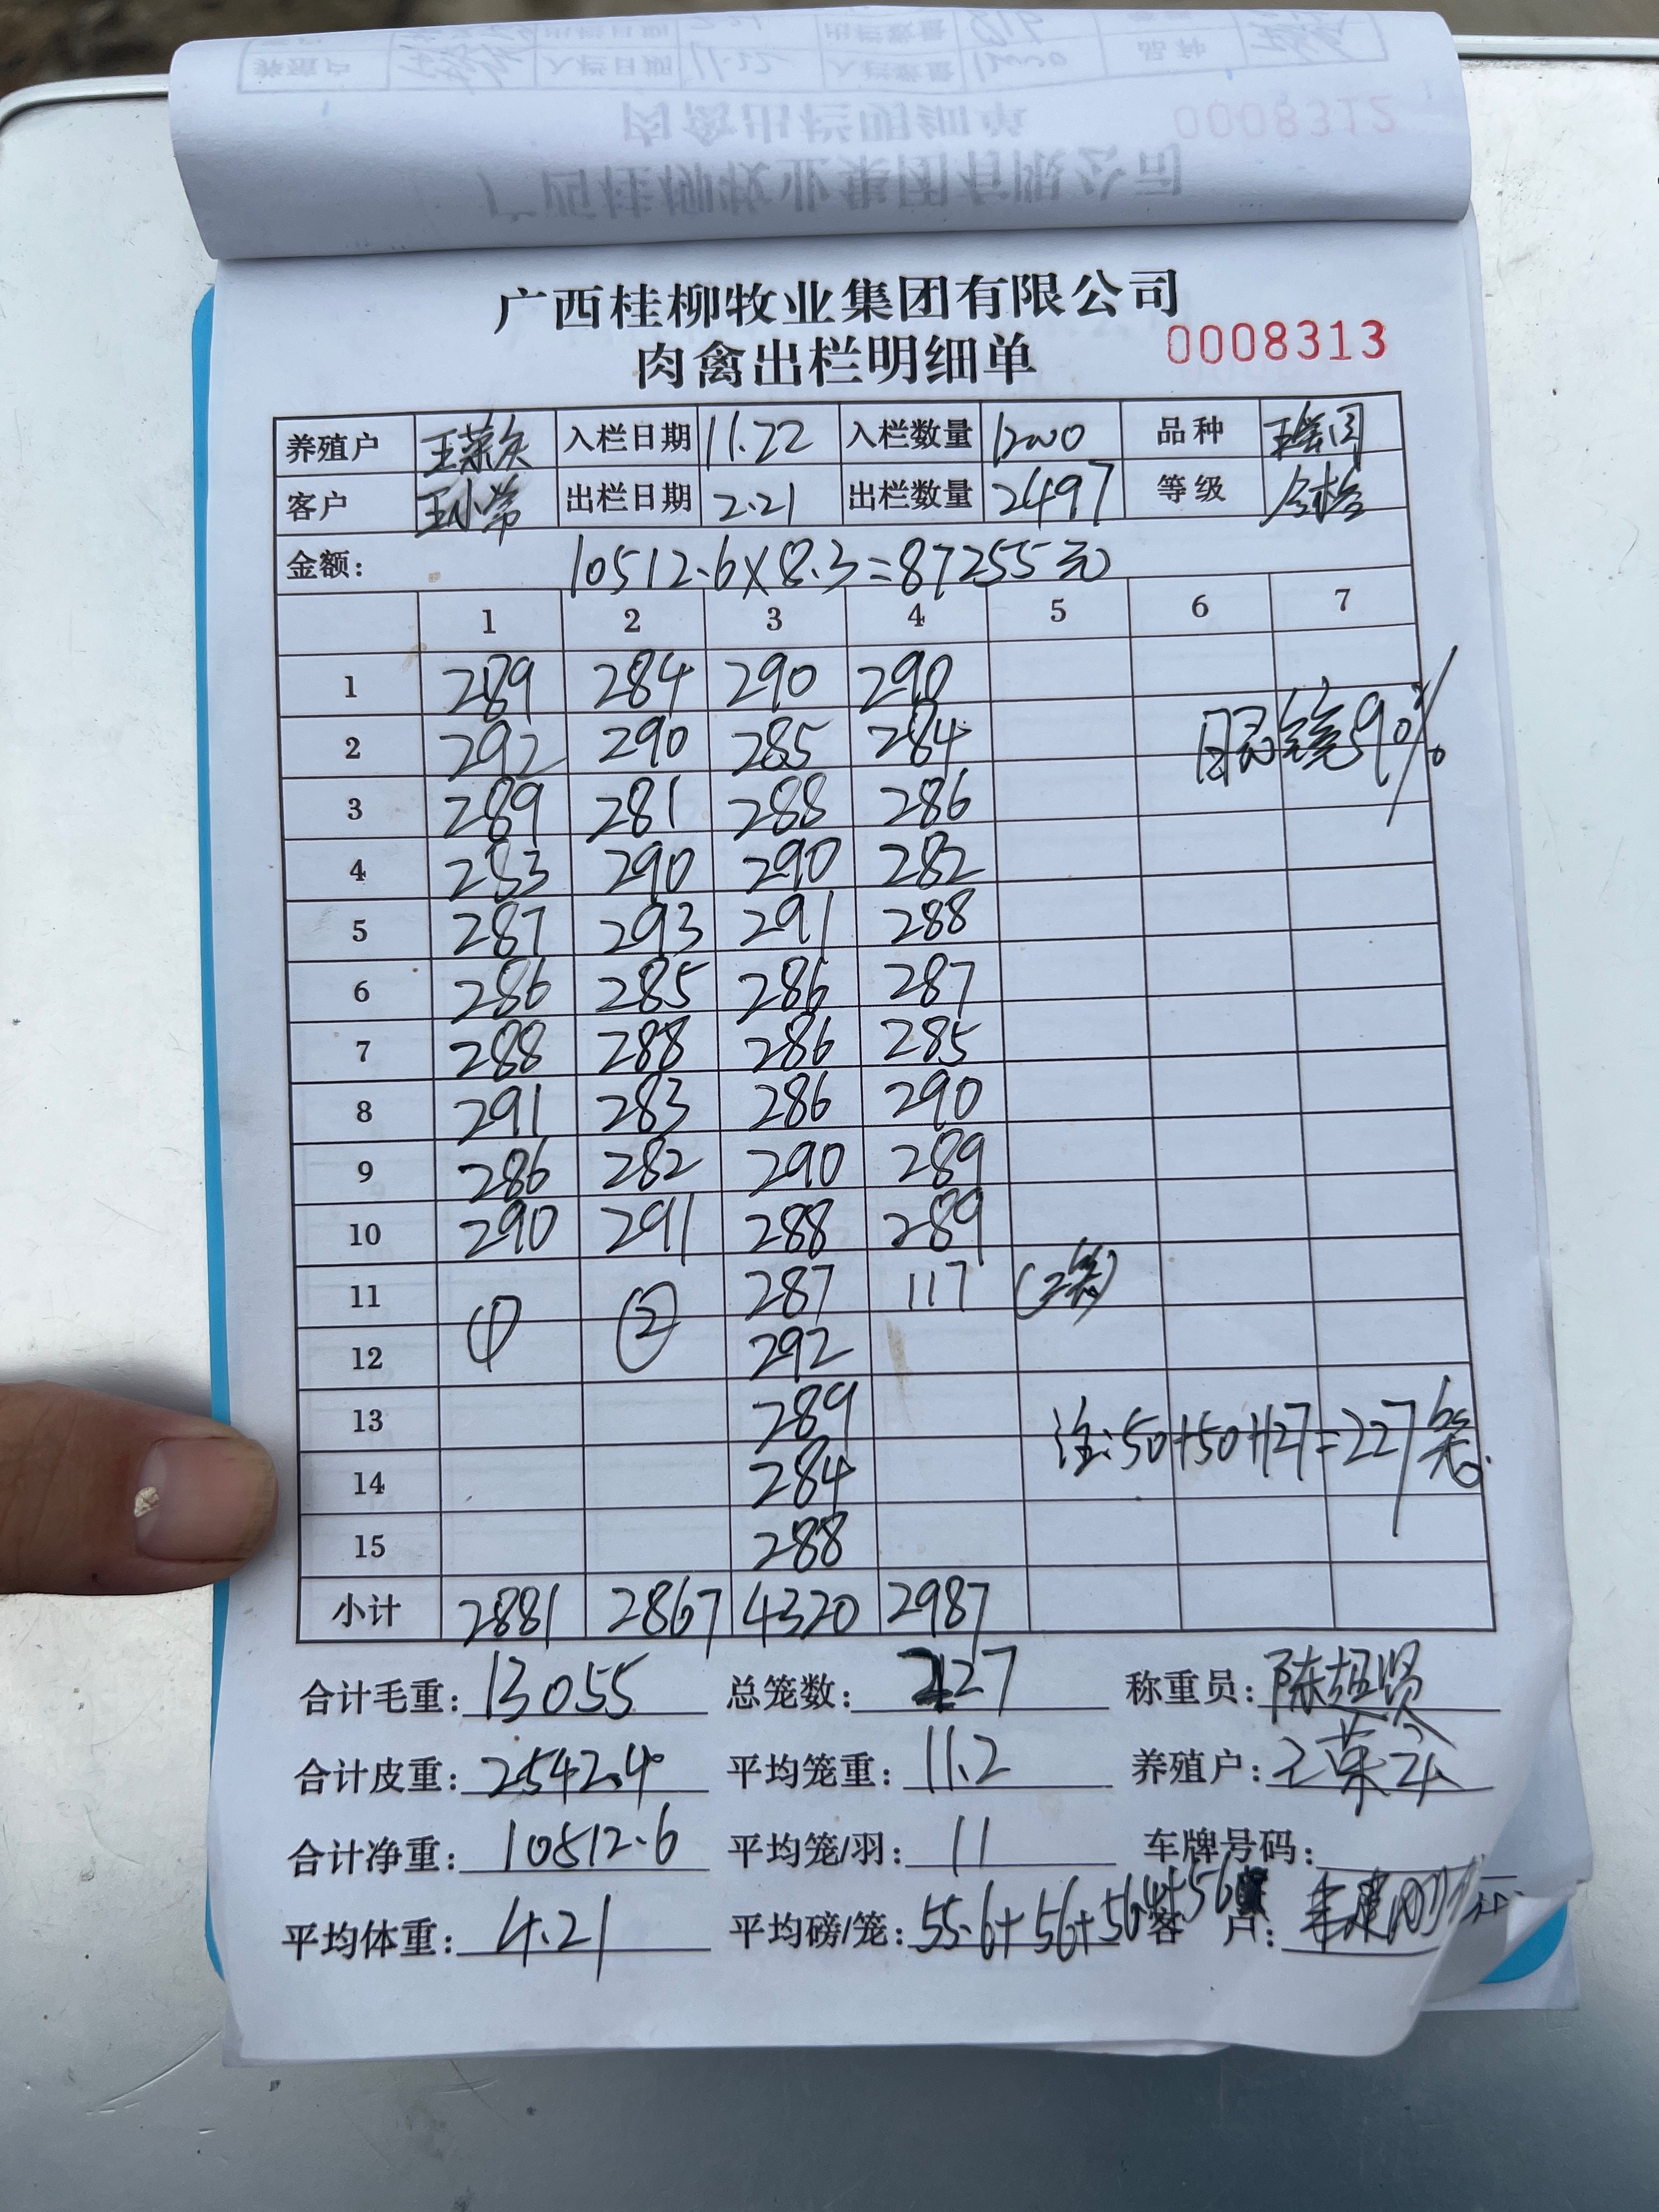 广西桂柳牧业集团有限公司
肉禽出栏明细单 0008313
养殖户 入栏日期 11.22 入栏数量 12000 品种
客户 王小常 出栏日期 2.21 出栏数量 2497 等级 合格
金额: 10512.6×8.3=87255元
1 2 3 4 5 6 7
1 289 284 290 290
2 292 290 285 284 90%
3 289 281 288 286
4 283 290 290 282
5 287 293 291 288
6 286 285 286 287
7 288 288 286 285
8 291 283 286 290
9 286 282 290 289
10 290 291 288 289
11 ① ② 287 117 (2笼)
12 292
13 289 注:50+50+127=227笼.
14 284
15 288
小计 2881 2867 4320 2987
合计毛重: 13055 总笼数: 227 称重员:
合计皮重: 2542.4 平均笼重: 11.2 养殖户:
合计净重: 10512.6 平均笼/羽: 11 车牌号码:
平均体重: 4.21 平均磅/笼: 55.6+56+56.4+56 客 户: